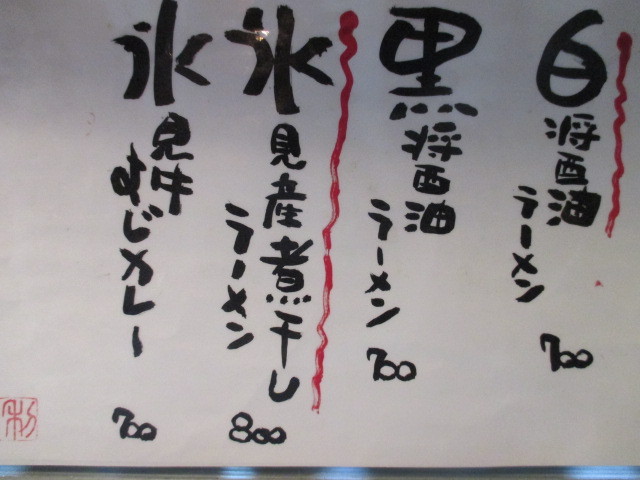 白醤油
ラーメン
700
黒醤油
ラーメン
700
氷見産煮干し
ラーメン
800
氷見牛
すじカレー
700
利